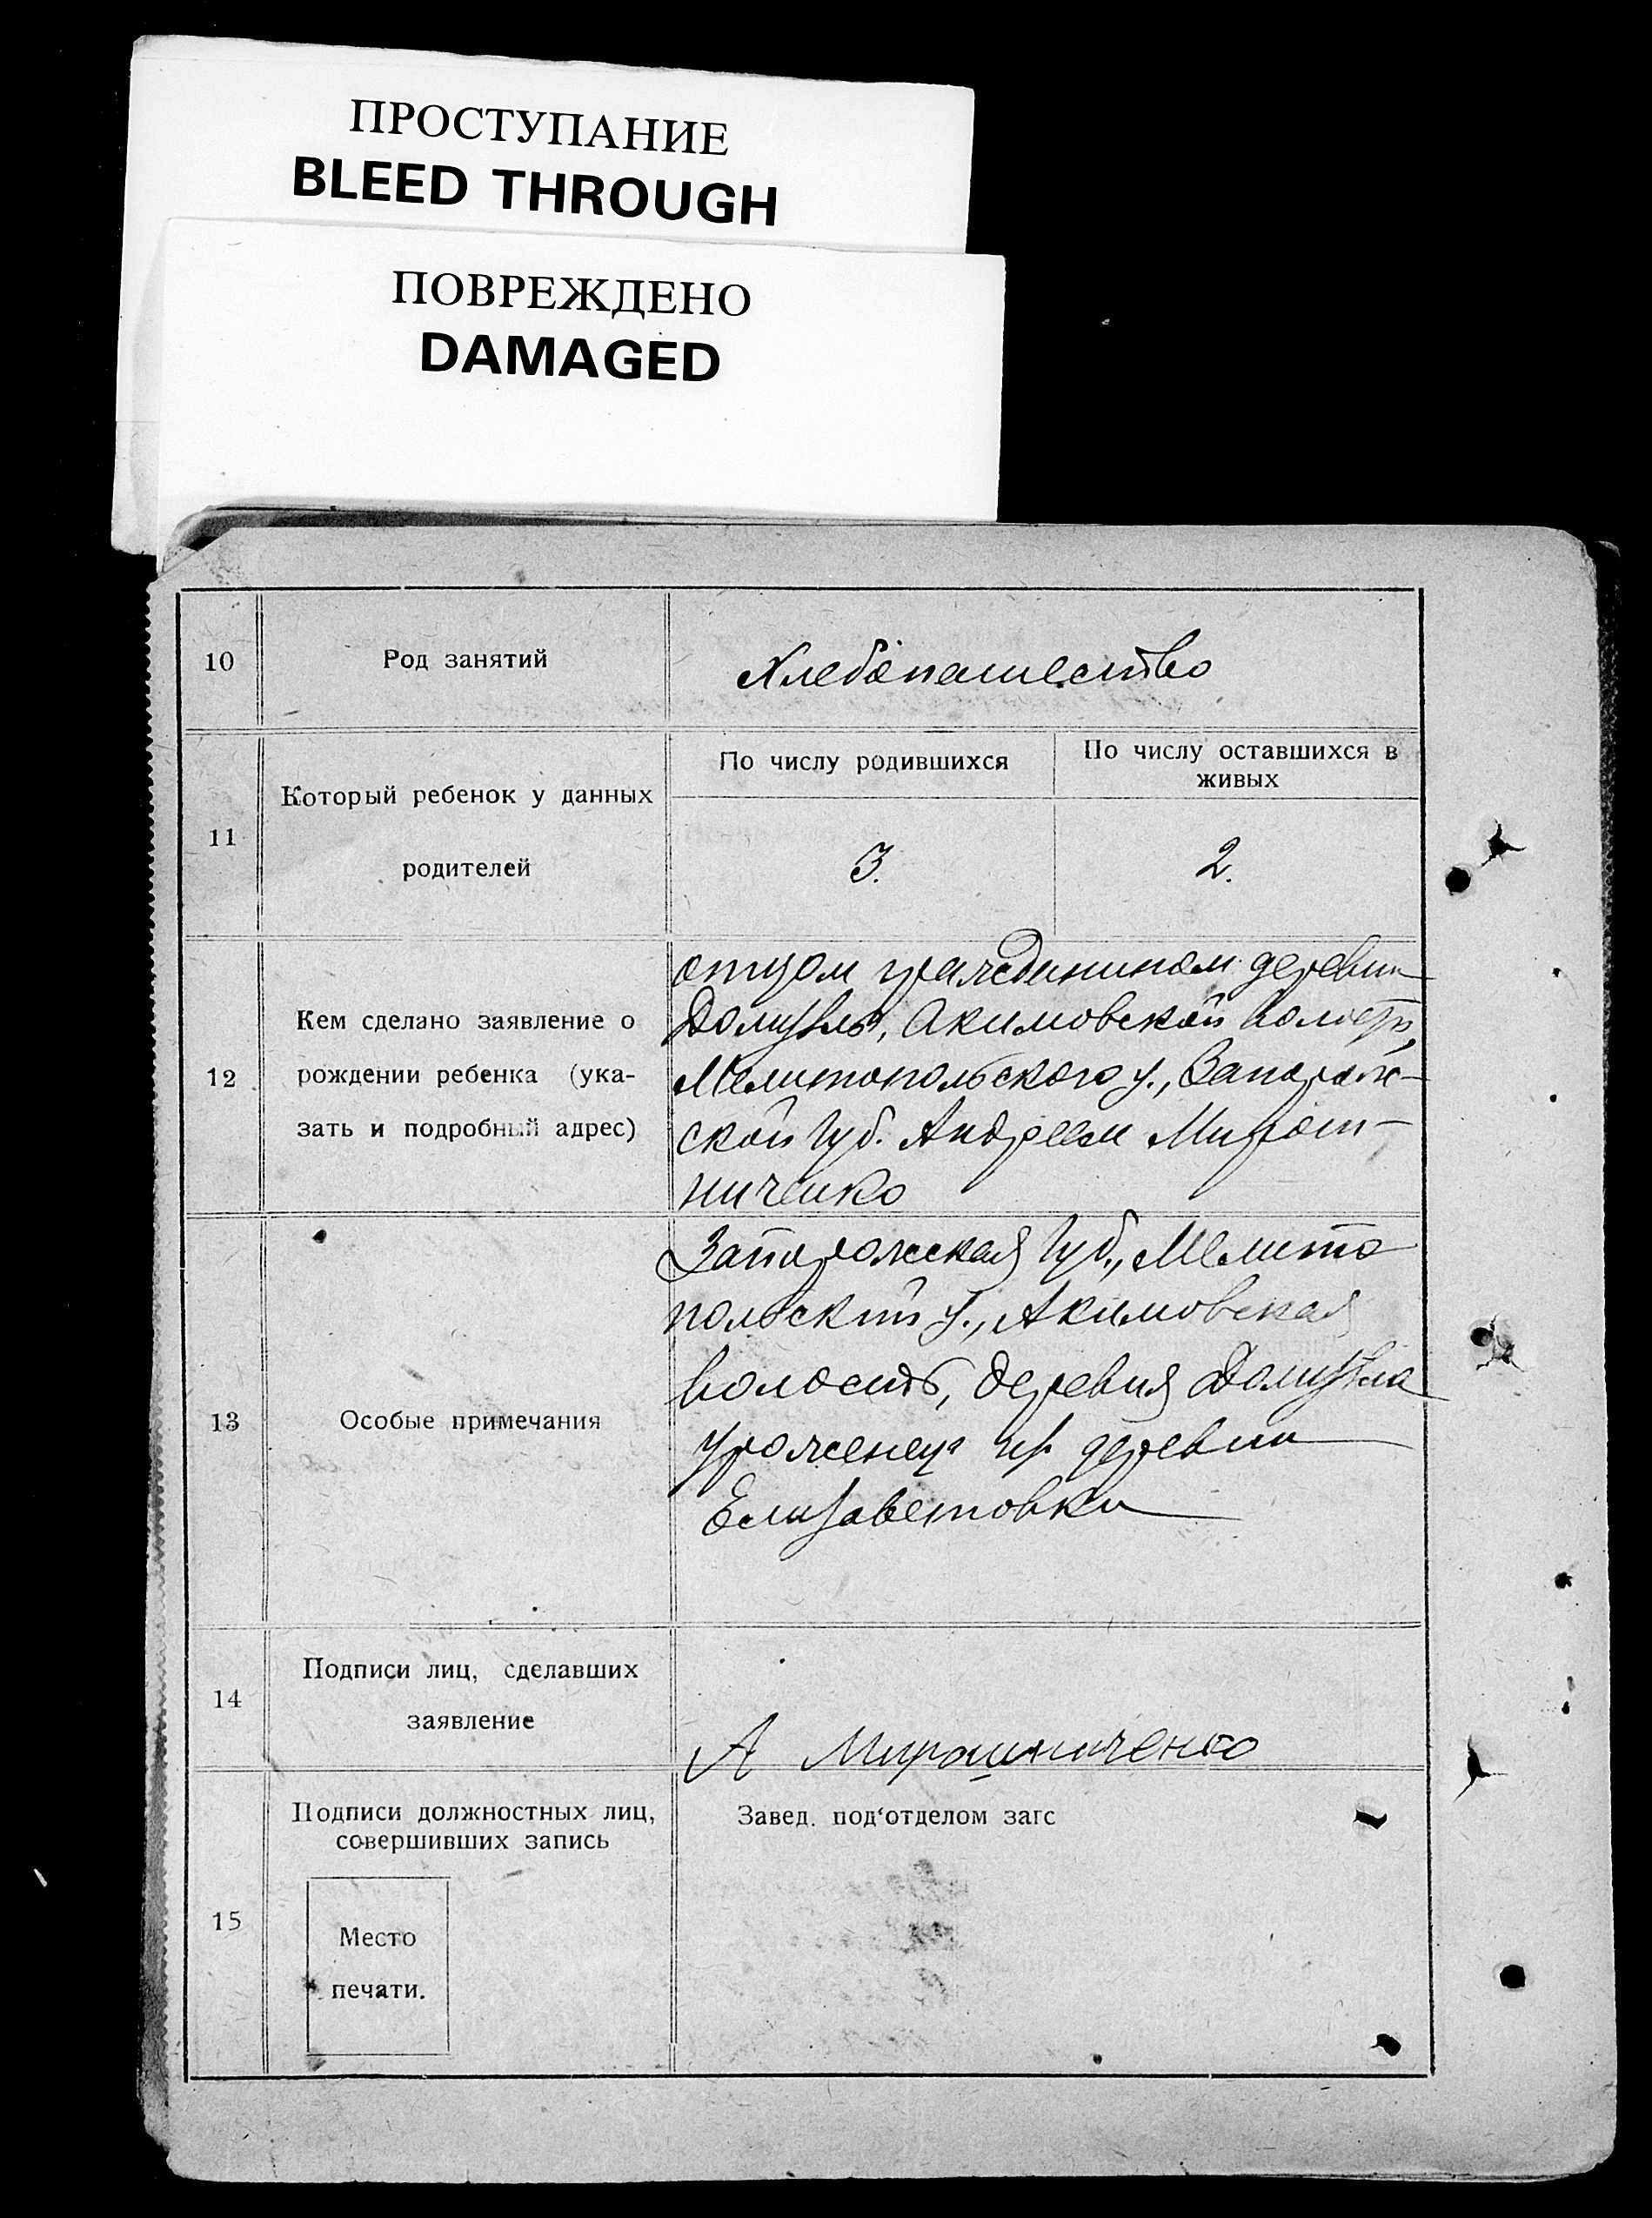 ПРОСТУПАНИЕ
BLEED THROUGH
ПОВРЕЖДЕНО
DAMAGED
10
Род занятий
Хлебопашество
11
Который ребенок у данных
родителей
По числу родившихся
По числу оставшихся в
живых
3.
2.
12
Кем сделано заявление о
рождении ребенка (ука-
зать и подробный адрес)
отцом гражданином деревни
Домузлы, Акимовской волости,
Мелитопольского у., Запорож-
ской губ. Андреем Мирош-
ниченко
13
Особые примечания
Запорожская губ., Мелито
польский у., Акимовская
волость, деревня Домузла
деревни
Елизаветовки
14
Подписи лиц, сделавших
заявление
А Мирошниченко
15
Подписи должностных лиц,
совершивших запись
Место
печати.
Завед. под‘отделом загс